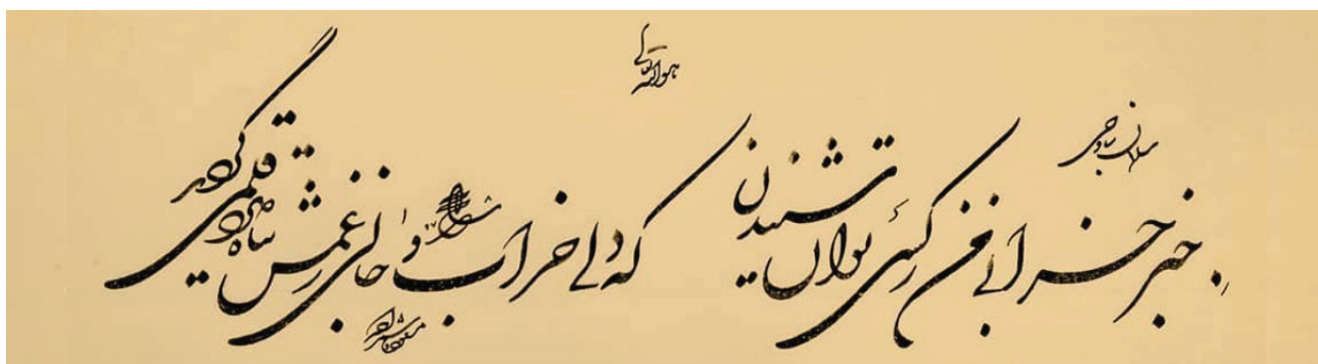 هو الله تعالی
سلمان ساوجی
خبر خرابی من ز کسی توان شنیدن
که دلی خراب و جانی ز غمش تباه دارد
قلمی گردید